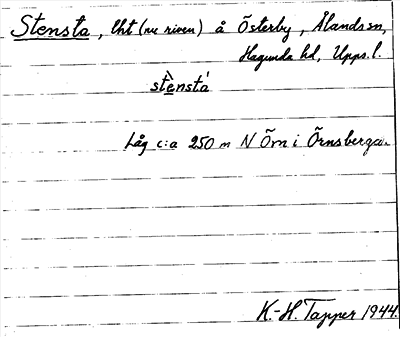 Stensta, lht (nu riven) å Österby, Ålands sn,
Hagunda hd, Upps. l.
stὲnstá
Låg c:a 250 m N Ö m i Örnsberga.
K.-H. Tapper 1944.